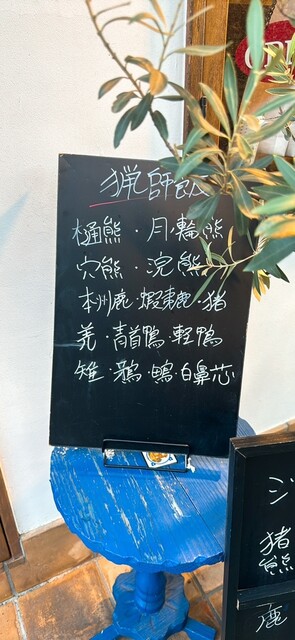 猟師
樋熊・月輪熊
穴熊・浣熊
本州鹿・蝦夷鹿・猪
・青首鴨・軽鴨
雉・鴉・・白鼻芯
ジ
猪
熊
鹿